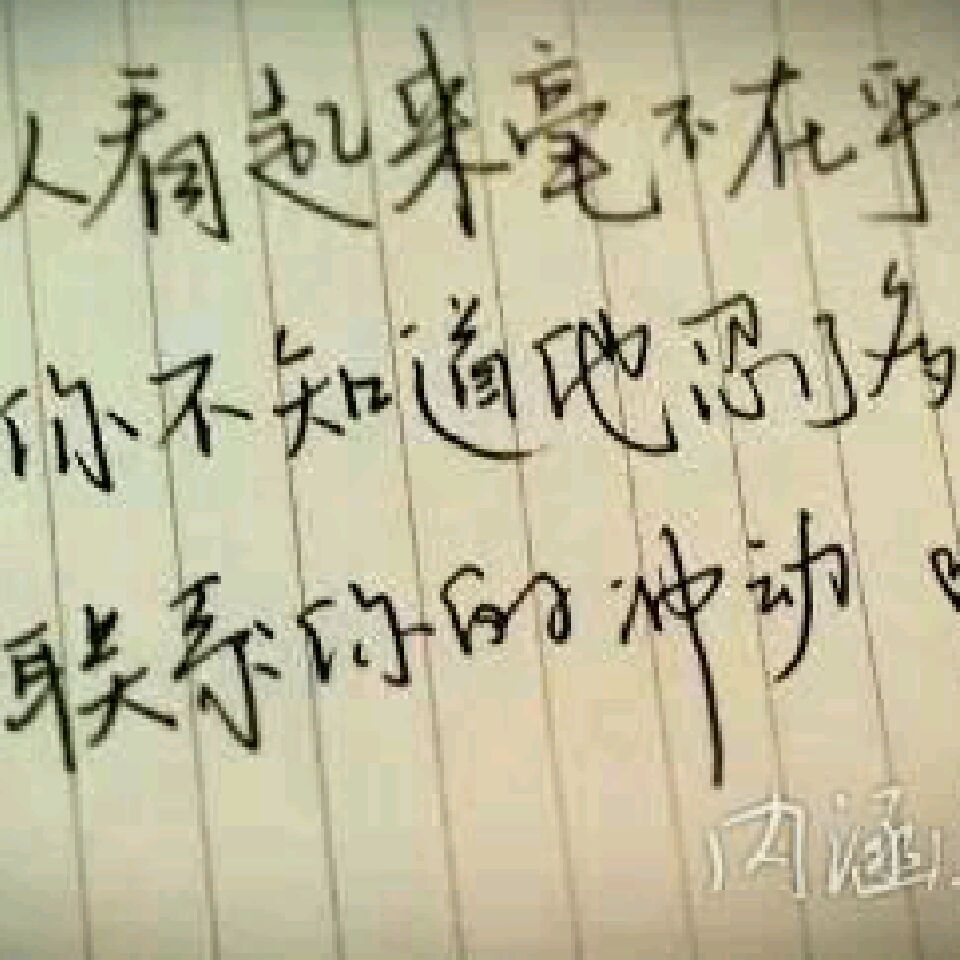 人看起来毫不在乎
你不知道他忍了多
联系你的冲动
内涵